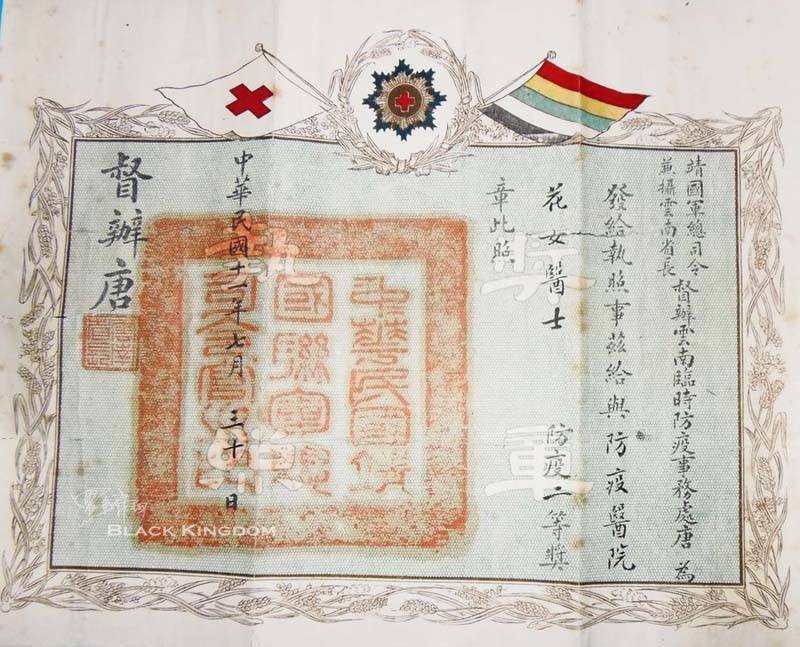 靖國軍總司令
兼攝雲南省長
督辦雲南臨時防疫事務處唐 為
發給執照事茲給與防疫醫院
花女醫士 防疫二等獎
章此照
獎章
執照
中華民國十一年七月三十日
督辦唐
BLACK KINGDOM